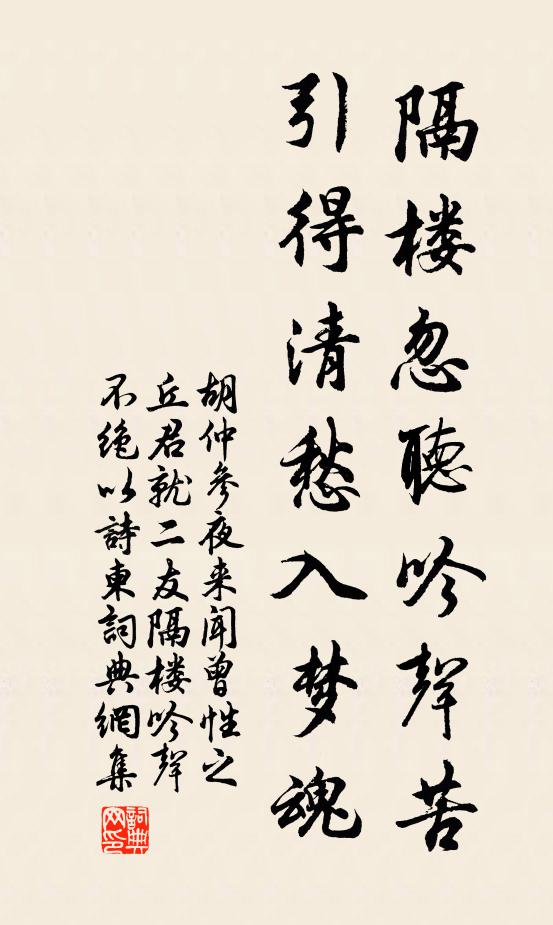 隔楼忽聽吟聲苦
引得清愁入梦魂
胡仲參夜来闻曾性之
丘君就二友隔楼吟聲
不绝以詩東詞典網集
詞典网印